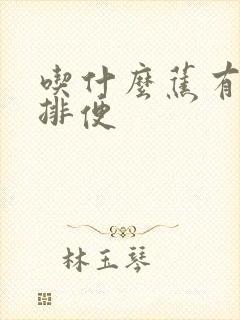 喫什麼蕉有
排便
林玉琴